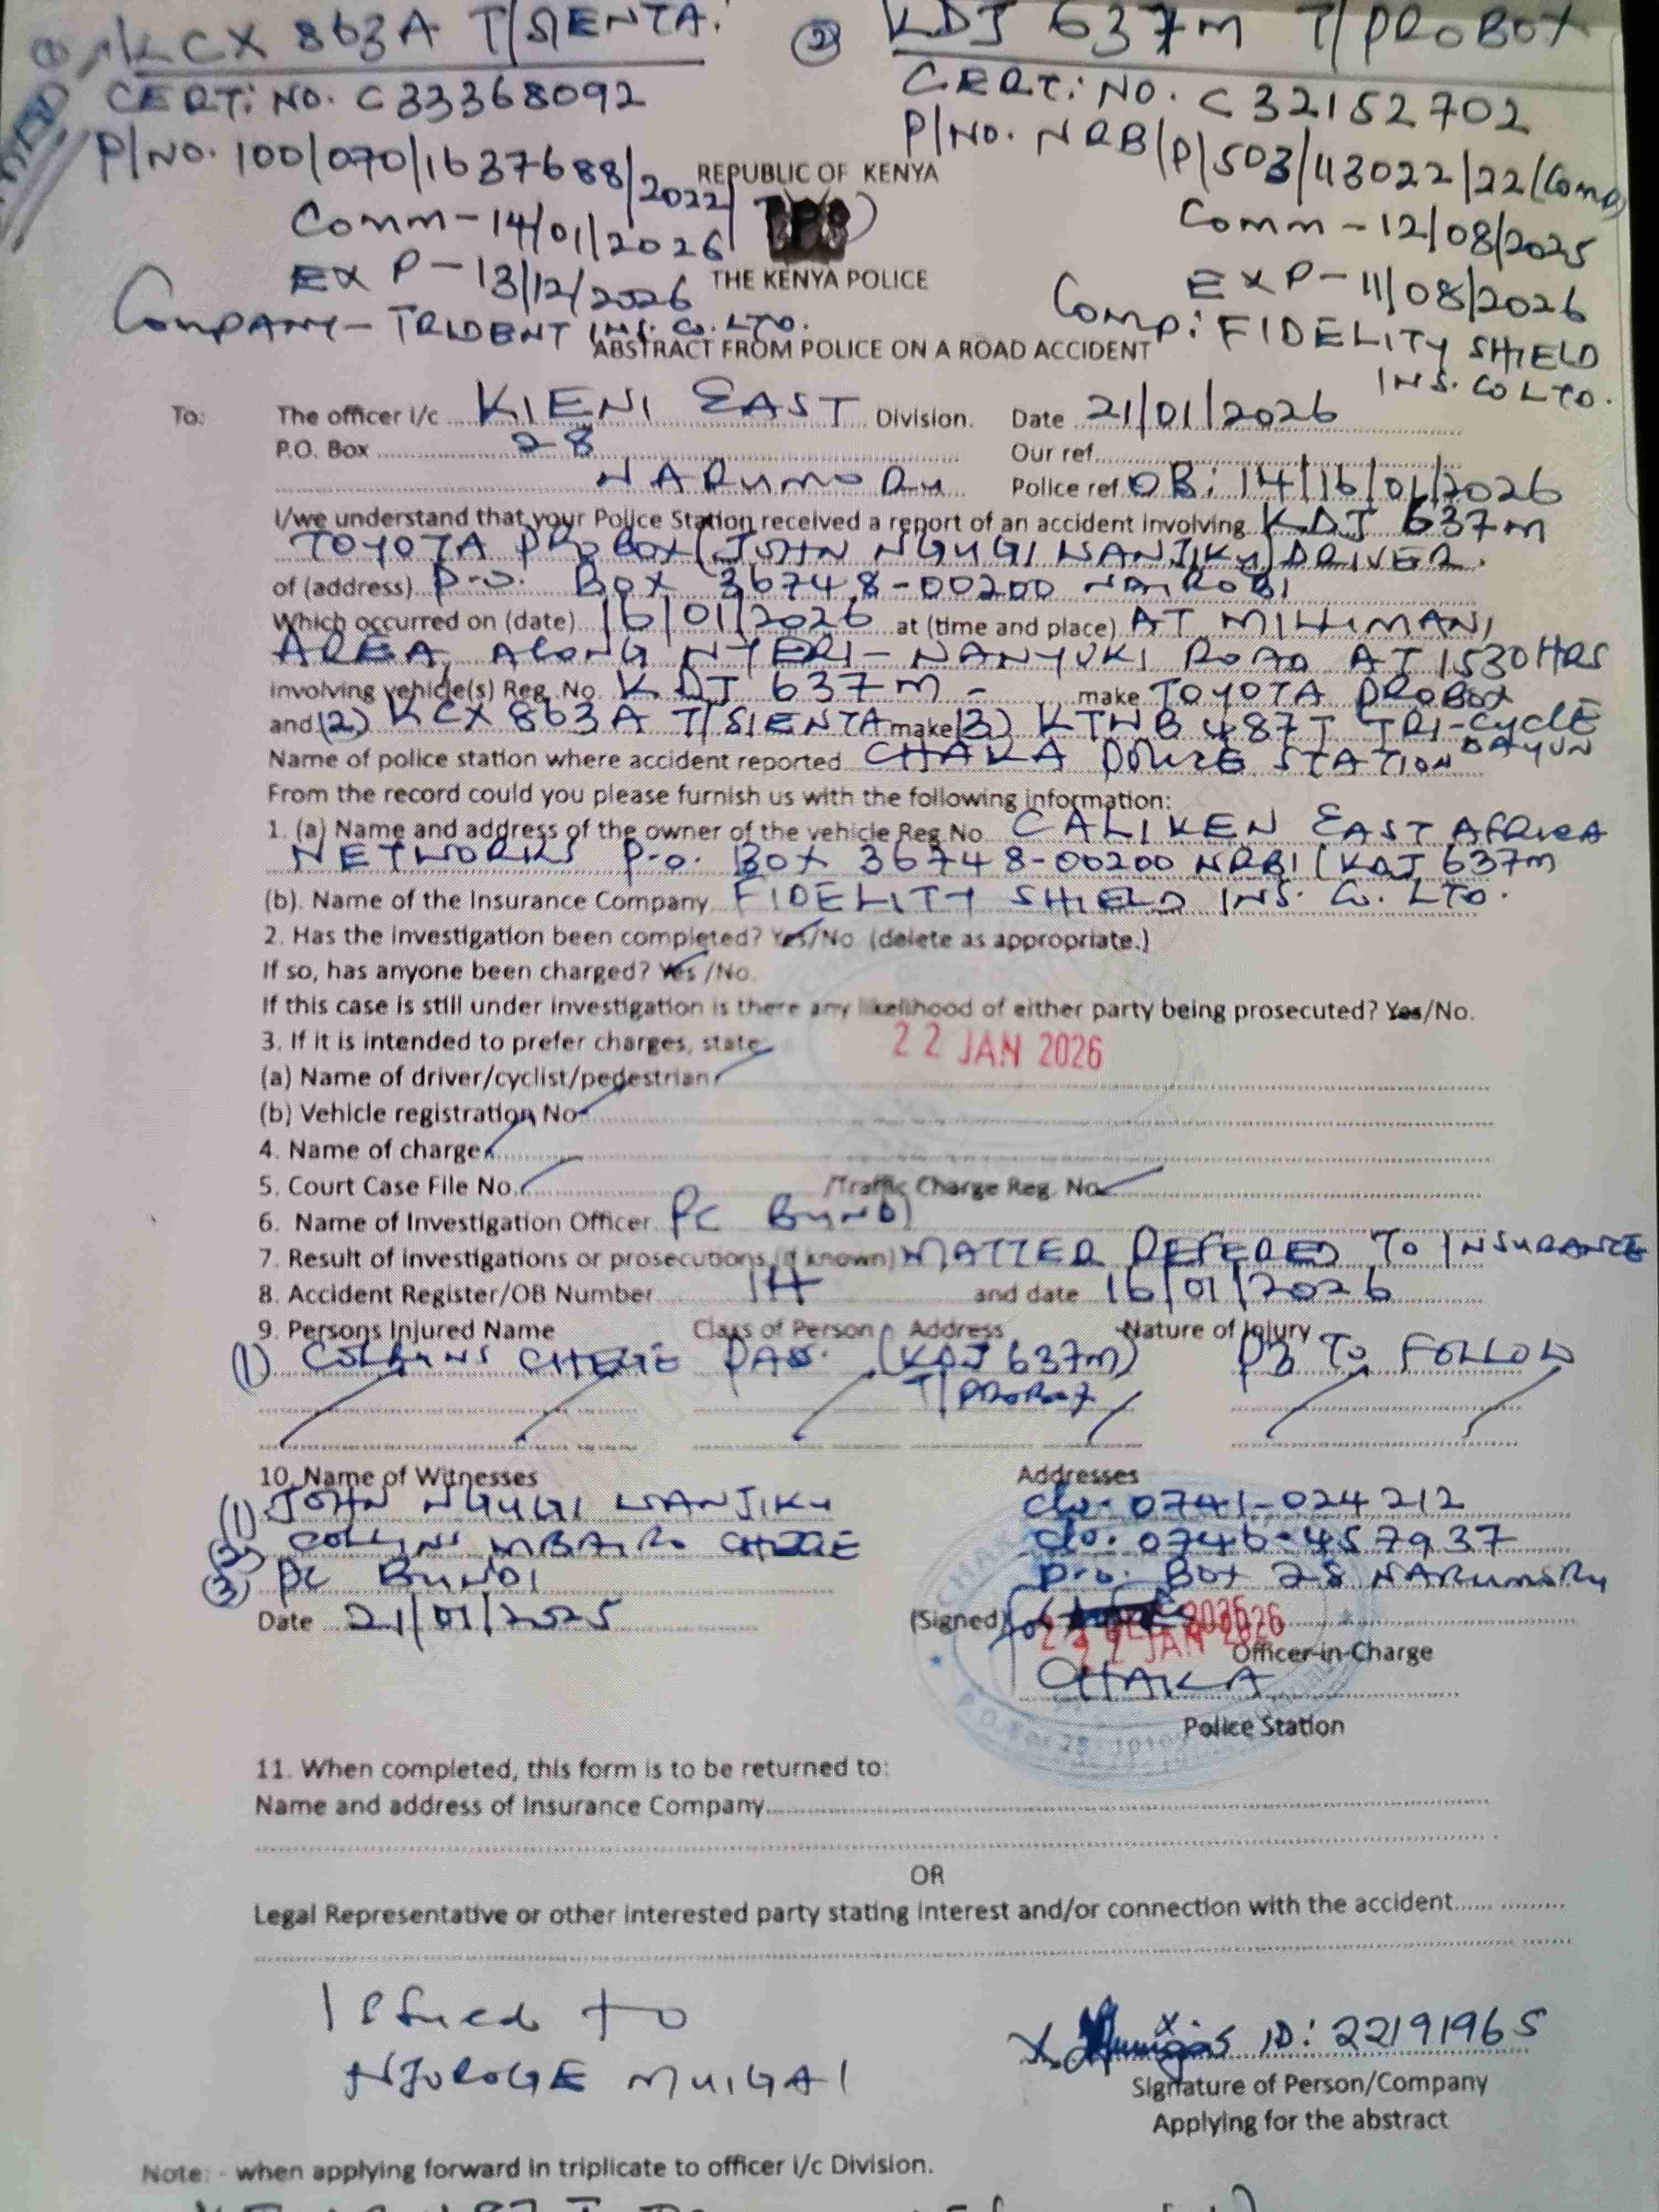 ① KCX 863A T/SIENTA.
CERT: NO. C33368092
P/NO. 100/070/1637688/2022/
Comm-14/01/2026
EXP-13/12/2026
COMPANY-TRIDENT INS. CO. LTD.
② KDJ 637M T/PROBOX
CERT: NO. C32152702
P/NO. NRB/P/503/113022/22/(Comp)
Comm-12/08/2025
EXP-11/08/2026
Comp: FIDELITY SHIELD
INS. CO LTD.
REPUBLIC OF KENYA
THE KENYA POLICE
ABSTRACT FROM POLICE ON A ROAD ACCIDENT
To: The officer i/c KIENI EAST Division. Date 21/01/2026
P.O. Box 28 Our ref.
NARUMORU Police ref OB: 14/16/01/2026
I/we understand that your Police Station received a report of an accident involving KDJ 637M
TOYOTA PROBOX (JOHN NGUGI WANJIKU) DRIVER.
of (address) P.O. BOX 36748-00200 NAIROBI
Which occurred on (date) 16/01/2026 at (time and place) AT MILIMANI
AREA, ALONG NYERI-NANYUKI ROAD AT 1530HRS
involving vehicle(s) Reg. No. KDJ 637M - make TOYOTA PROBOX
and (2) KCX 863A T/SIENTA make (3) KTWB 487T TRI-CYCLE
DAYUN
Name of police station where accident reported CHAKA POLICE STATION
From the record could you please furnish us with the following information:
1. (a) Name and address of the owner of the vehicle Reg.No CALIKEN EAST AFRICA
NETWORKS P.O. BOX 36748-00200 NRBI (KDJ 637M
(b). Name of the Insurance Company FIDELITY SHIELD INS. Co. LTD.
2. Has the investigation been completed? Yes/No (delete as appropriate.)
If so, has anyone been charged? Yes /No.
If this case is still under investigation is there any likelihood of either party being prosecuted? Yes/No.
3. If it is intended to prefer charges, state
22 JAN 2026
(a) Name of driver/cyclist/pedestrian
(b) Vehicle registration No
4. Name of charge
5. Court Case File No. /Traffic Charge Reg. No
6. Name of Investigation Officer PC BUNDI
7. Result of investigations or prosecutions (if known) MATTER REFERED TO INSURANCE
8. Accident Register/OB Number 14 and date 16/01/2026
9. Persons Injured Name Class of Person Address Nature of Injury
(1) CHEGE PAS. (KDJ 637M) P3 TO FOLLOW
T/PROBOX
10. Name of Witnesses Addresses
(1) JOHN NGUGI WANJIKU C/o: 0741-024212
(2) COLLINS MBAIRO CHEGE C/o: 0746-457937
(3) PC BUNDI P.O. BOX 28 NARUMORU
Date 21/01/2025 (Signed) for
22 JAN 2026
Officer-in-Charge
CHAKA
Police Station
11. When completed, this form is to be returned to:
Name and address of Insurance Company
OR
Legal Representative or other interested party stating interest and/or connection with the accident
Issued to
NJOROGE MUIGAI
X. ID: 22191965
Signature of Person/Company
Applying for the abstract
Note: - when applying forward in triplicate to officer i/c Division.